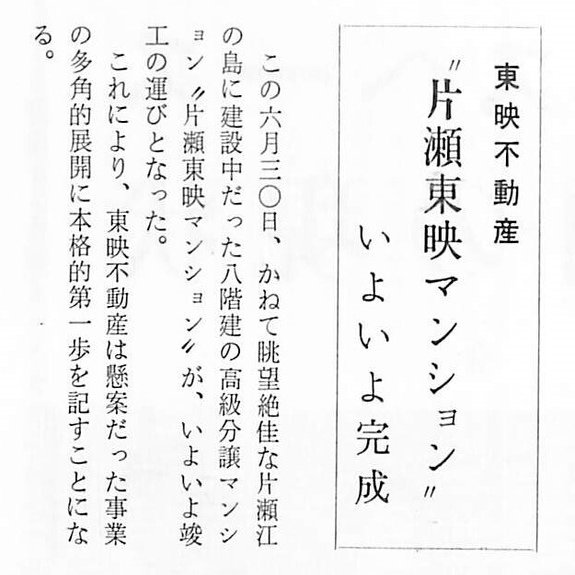 東映不動産
〝片瀬東映マンション〟
いよいよ完成
この六月三〇日、かねて眺望絶佳な片瀬江
の島に建設中だった八階建の高級分譲マンシ
ョン〝片瀬東映マンション〟が、いよいよ竣
工の運びとなった。
これにより、東映不動産は懸案だった事業
の多角的展開に本格的第一歩を記すことにな
る。